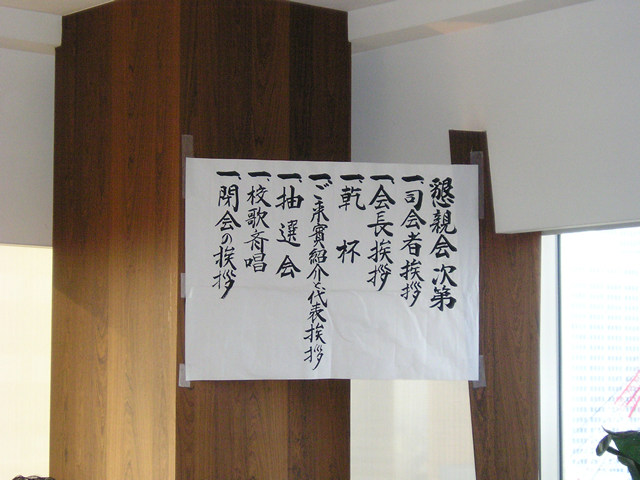 懇親会次第
一、司会者挨拶
一、会長挨拶
一、乾杯
一、ご来賓紹介と代表挨拶
一、抽選会
一、校歌斉唱
一、閉会の挨拶